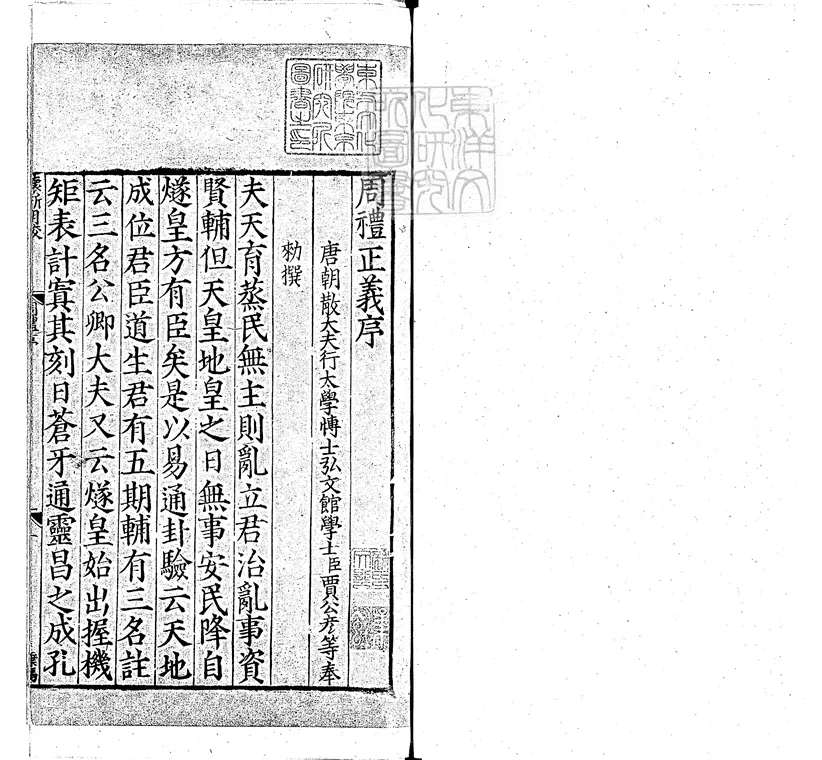 周禮正義序
唐朝散大夫行太學博士弘文館學士臣賈公彦等奉
勑撰
夫天育蒸民無主則亂立君治亂事資
賢輔但天皇地皇之日無事安民降自
燧皇方有臣矣是以易通卦驗云天地
成位君臣道生君有五期輔有三名註
云三名公卿大夫又云燧皇始出握機
矩表計寘其刻曰蒼牙通靈昌之成孔
東方文化
學院京都
研究所
圖書之印
東洋文
化研究
所圖書